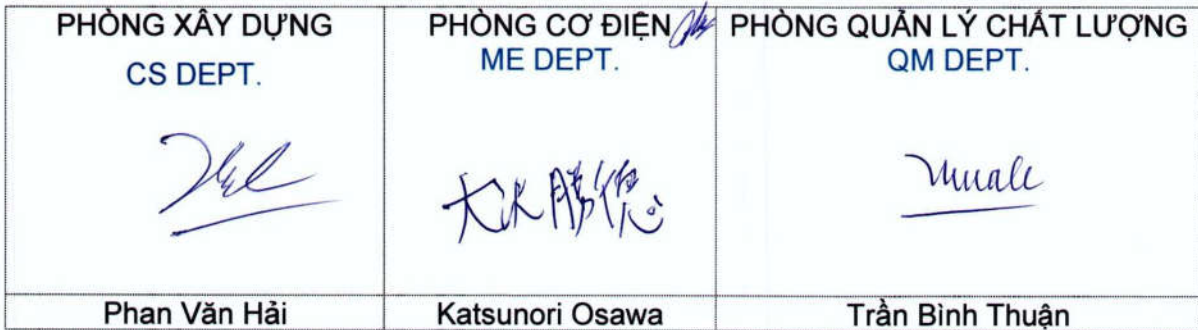 PHÒNG XÂY DỰNG
CS DEPT.
PHÒNG CƠ ĐIỆN
ME DEPT.
PHÒNG QUẢN LÝ CHẤT LƯỢNG
QM DEPT.
Phan Văn Hải
Katsunori Osawa
Trần Bình Thuận